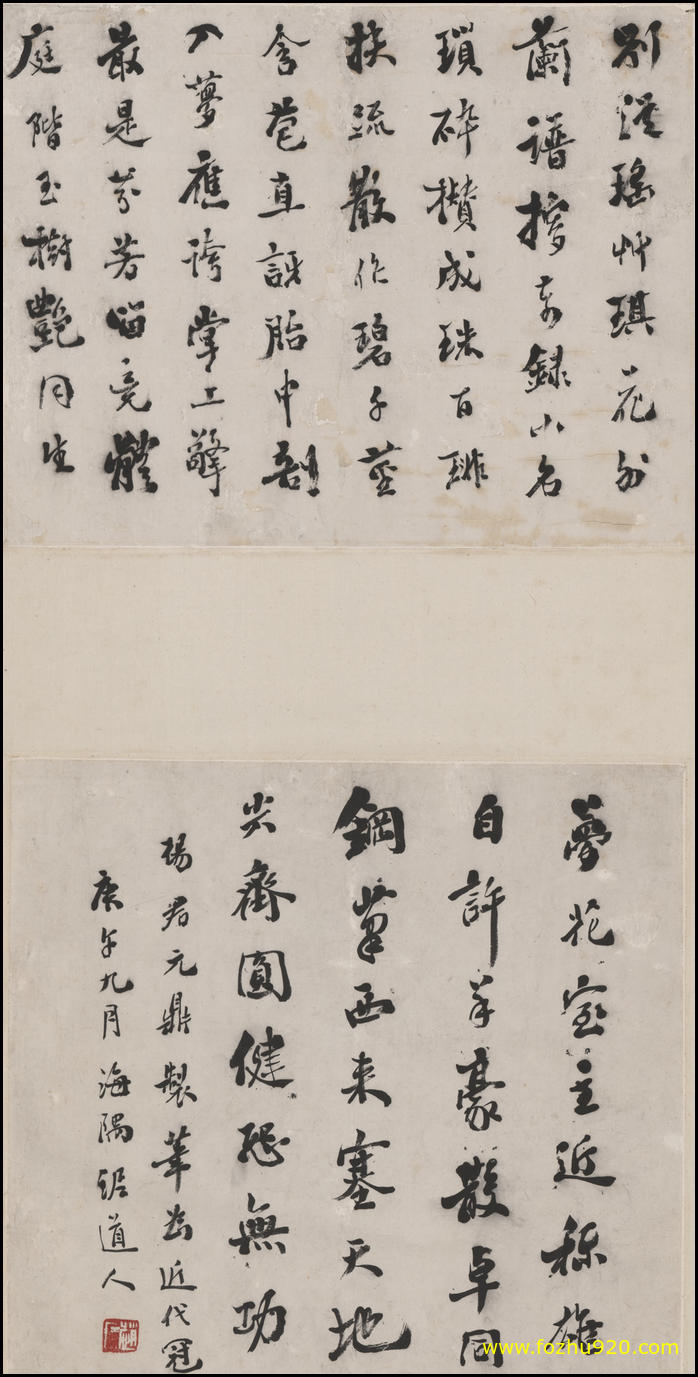 別泛瑤艸琪花外
蘭譜撏芳錄小名
瑣碎攢成珠百琲
扶疏散作碧千莖
含苞直訝胎中剖
入夢應誇掌上擎
最是芬芳留竟體
庭階玉樹艷同生
夢花室主近稱雄
自許羊豪散卓同
鋼筆西来塞天地
尖齊圓健恐無功
楊君元鼎製筆為近代冠
庚午九月海隅道人
www.fozhu920.com